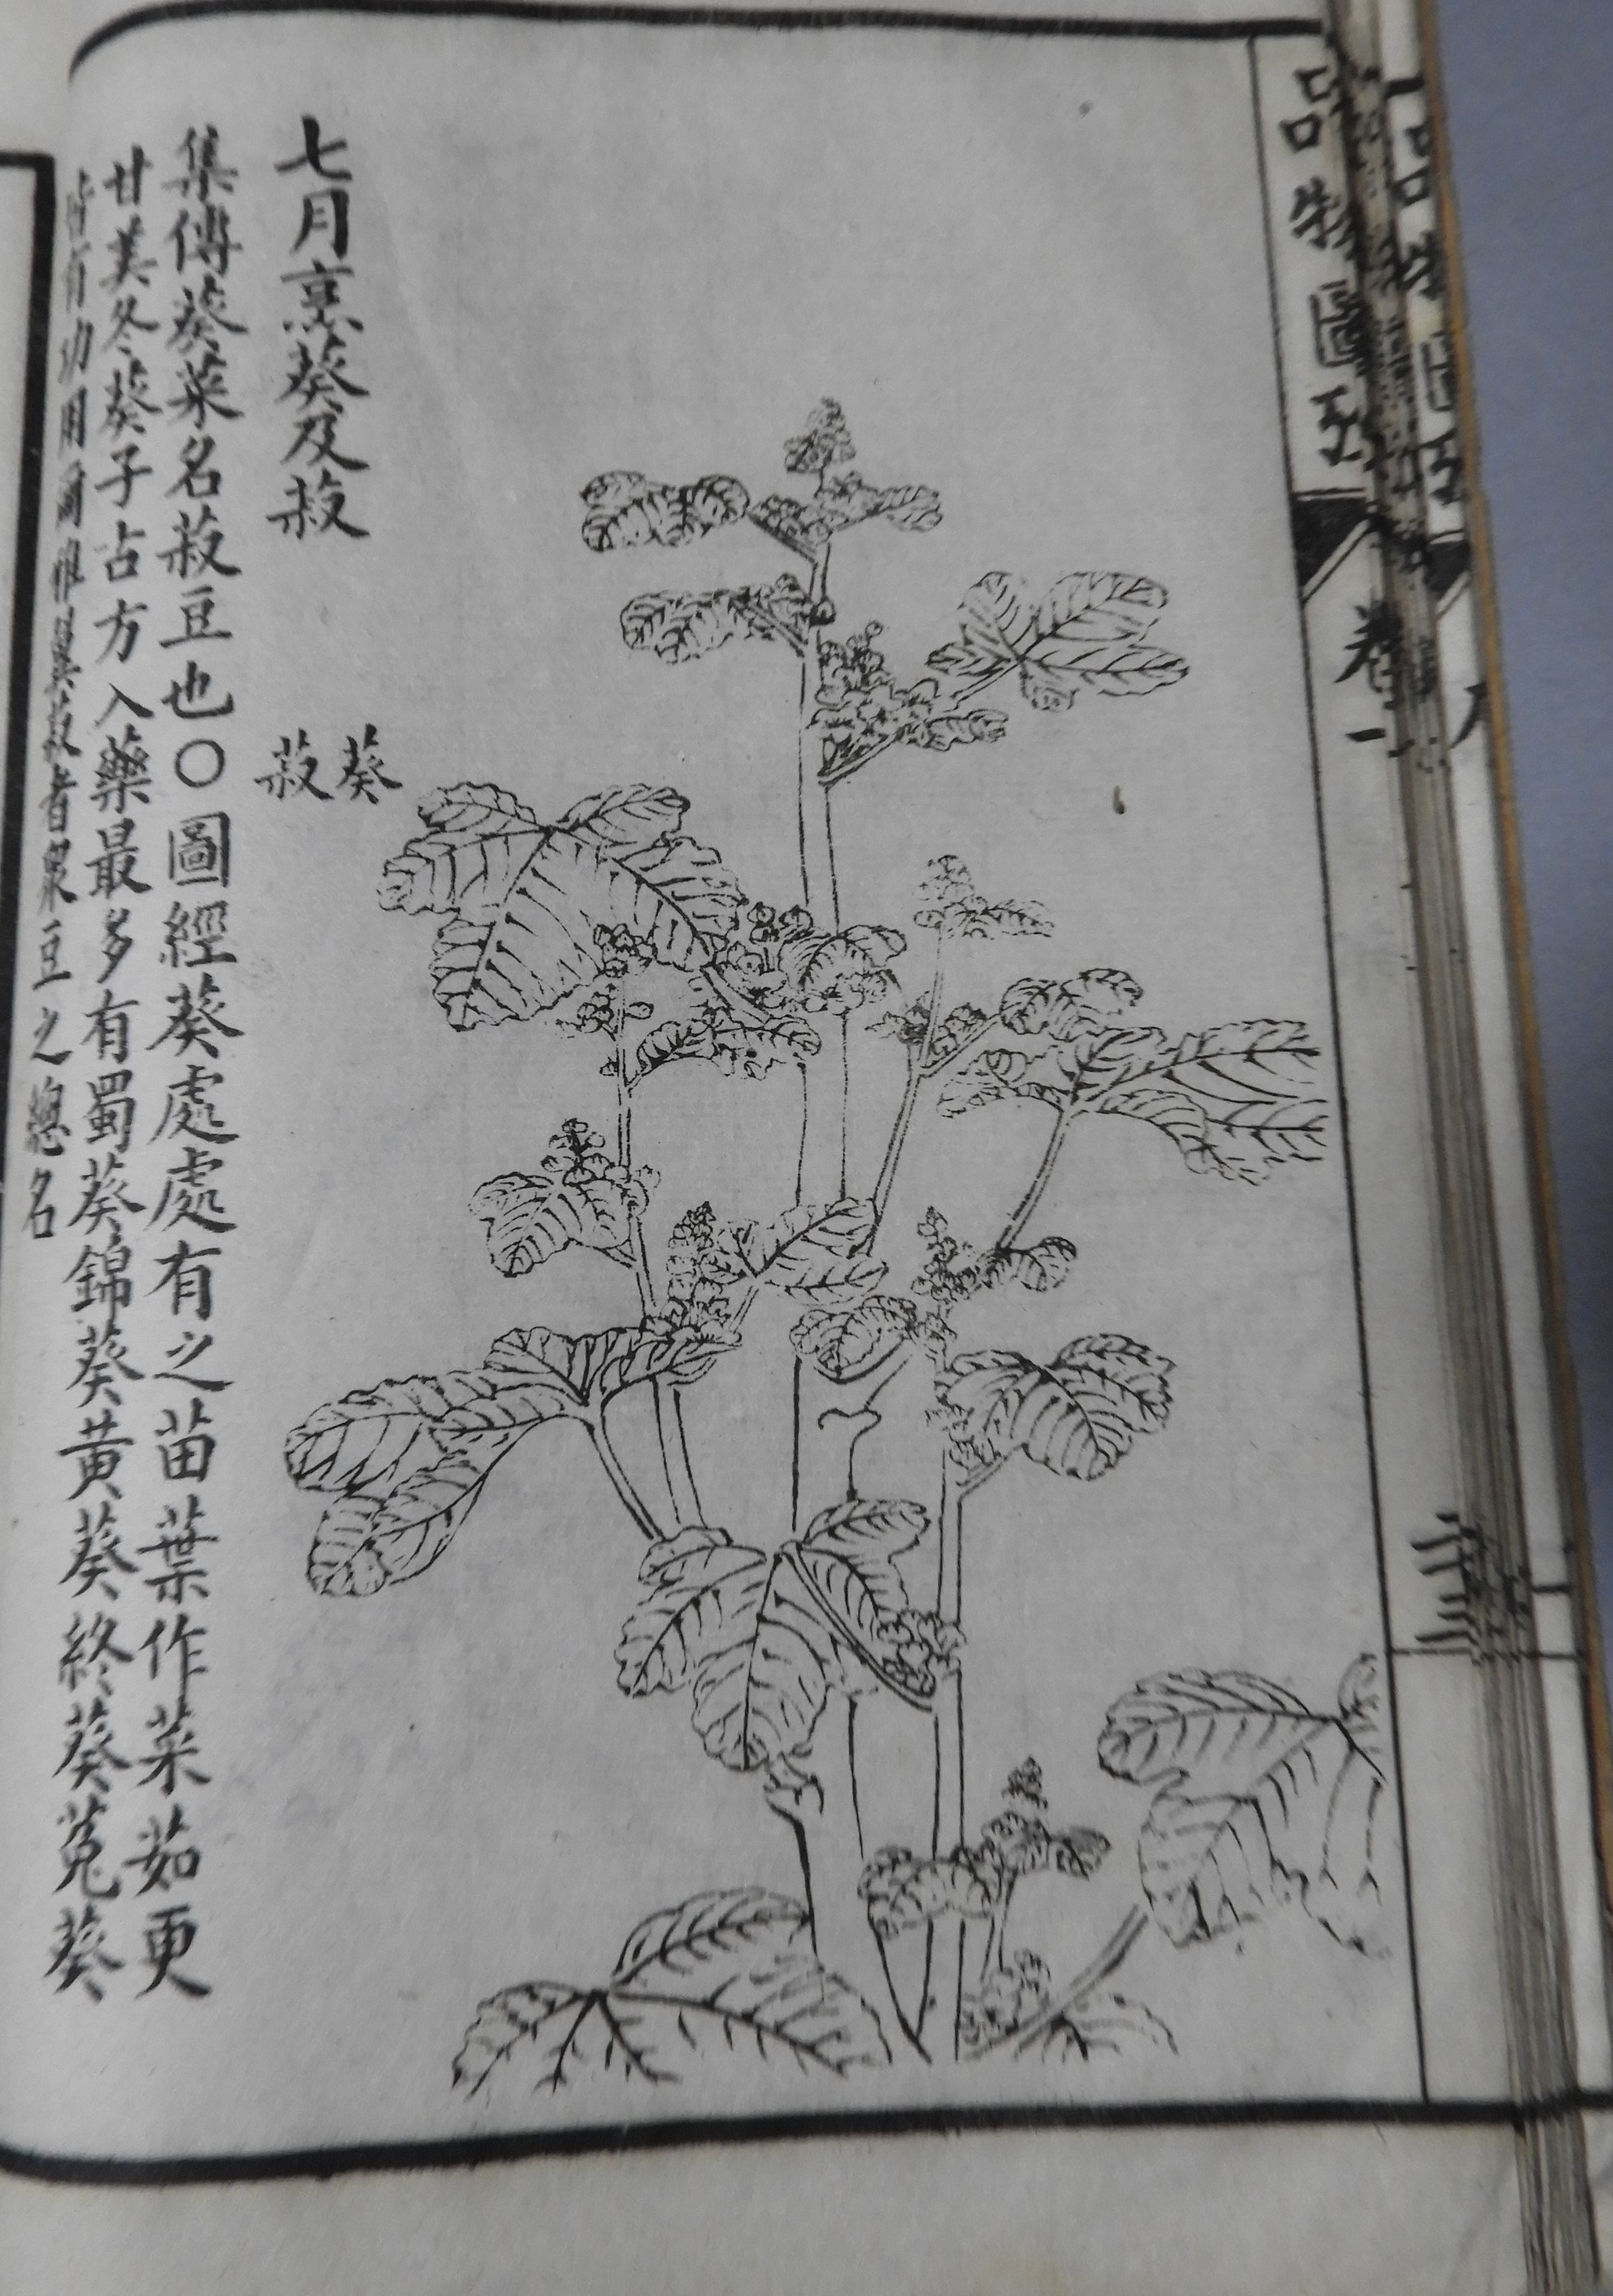 品物圖五
卷一
七月烹葵及菽
葵
菽
集傳葵菜名菽豆也〇圖經葵處處有之苗葉作菜茹更
甘美冬葵子古方入藥最多有蜀葵錦葵黃葵終葵菟葵
皆有功用爾雅翼菽者眾豆之總名